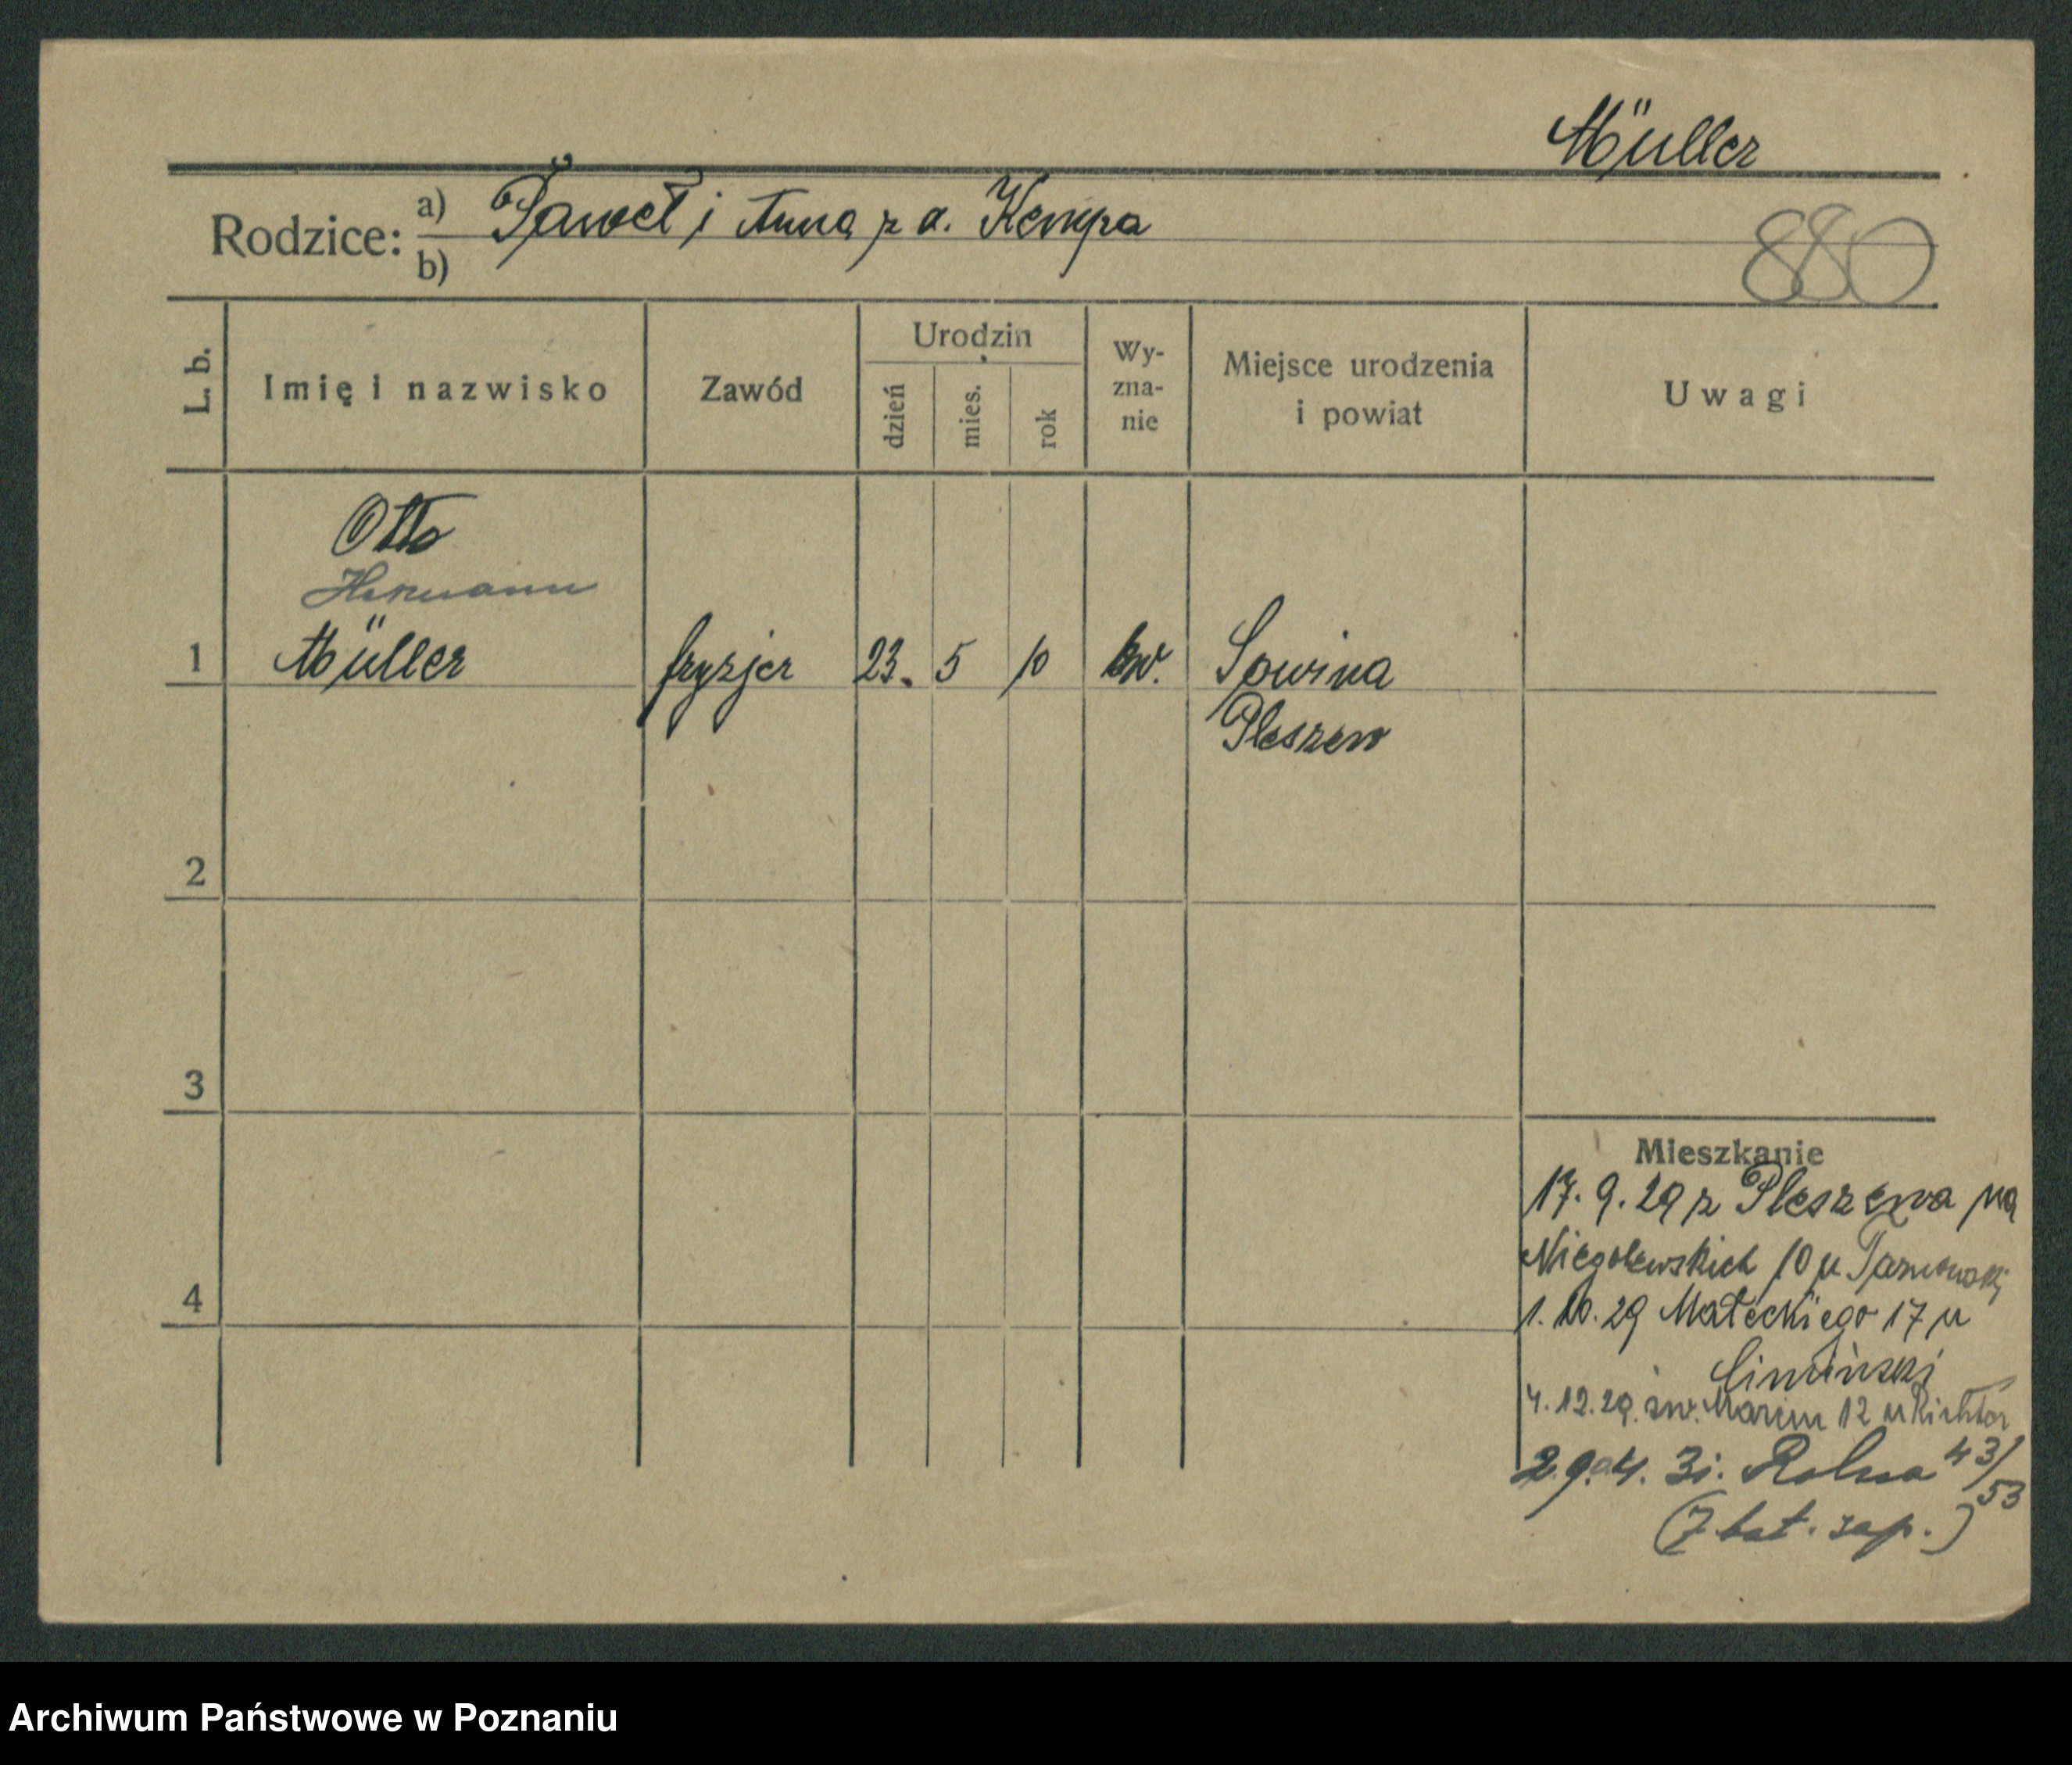 Müller
Rodzice: a) Paweł i Anna z d. Kempa
b)
880
L. b.
Imię i nazwisko
Zawód
Urodzin
dzień
mies.
rok
Wy-
zna-
nie
Miejsce urodzenia
i powiat
Uwagi
Otto
Hermann
1 Müller fryzjer 23. 5 10 ew. Sowina
Pleszew
2
3
4
Mieszkanie
17. 9. 29 z Pleszewa na
Niegolewskich 10 u
1. 10. 29 Małeckiego 17 u
4. 12. 29. św. Marcin 12 u Richter
29. 4. 31. Rolna 43/
53
(7 bat. sap.)
Archiwum Państwowe w Poznaniu